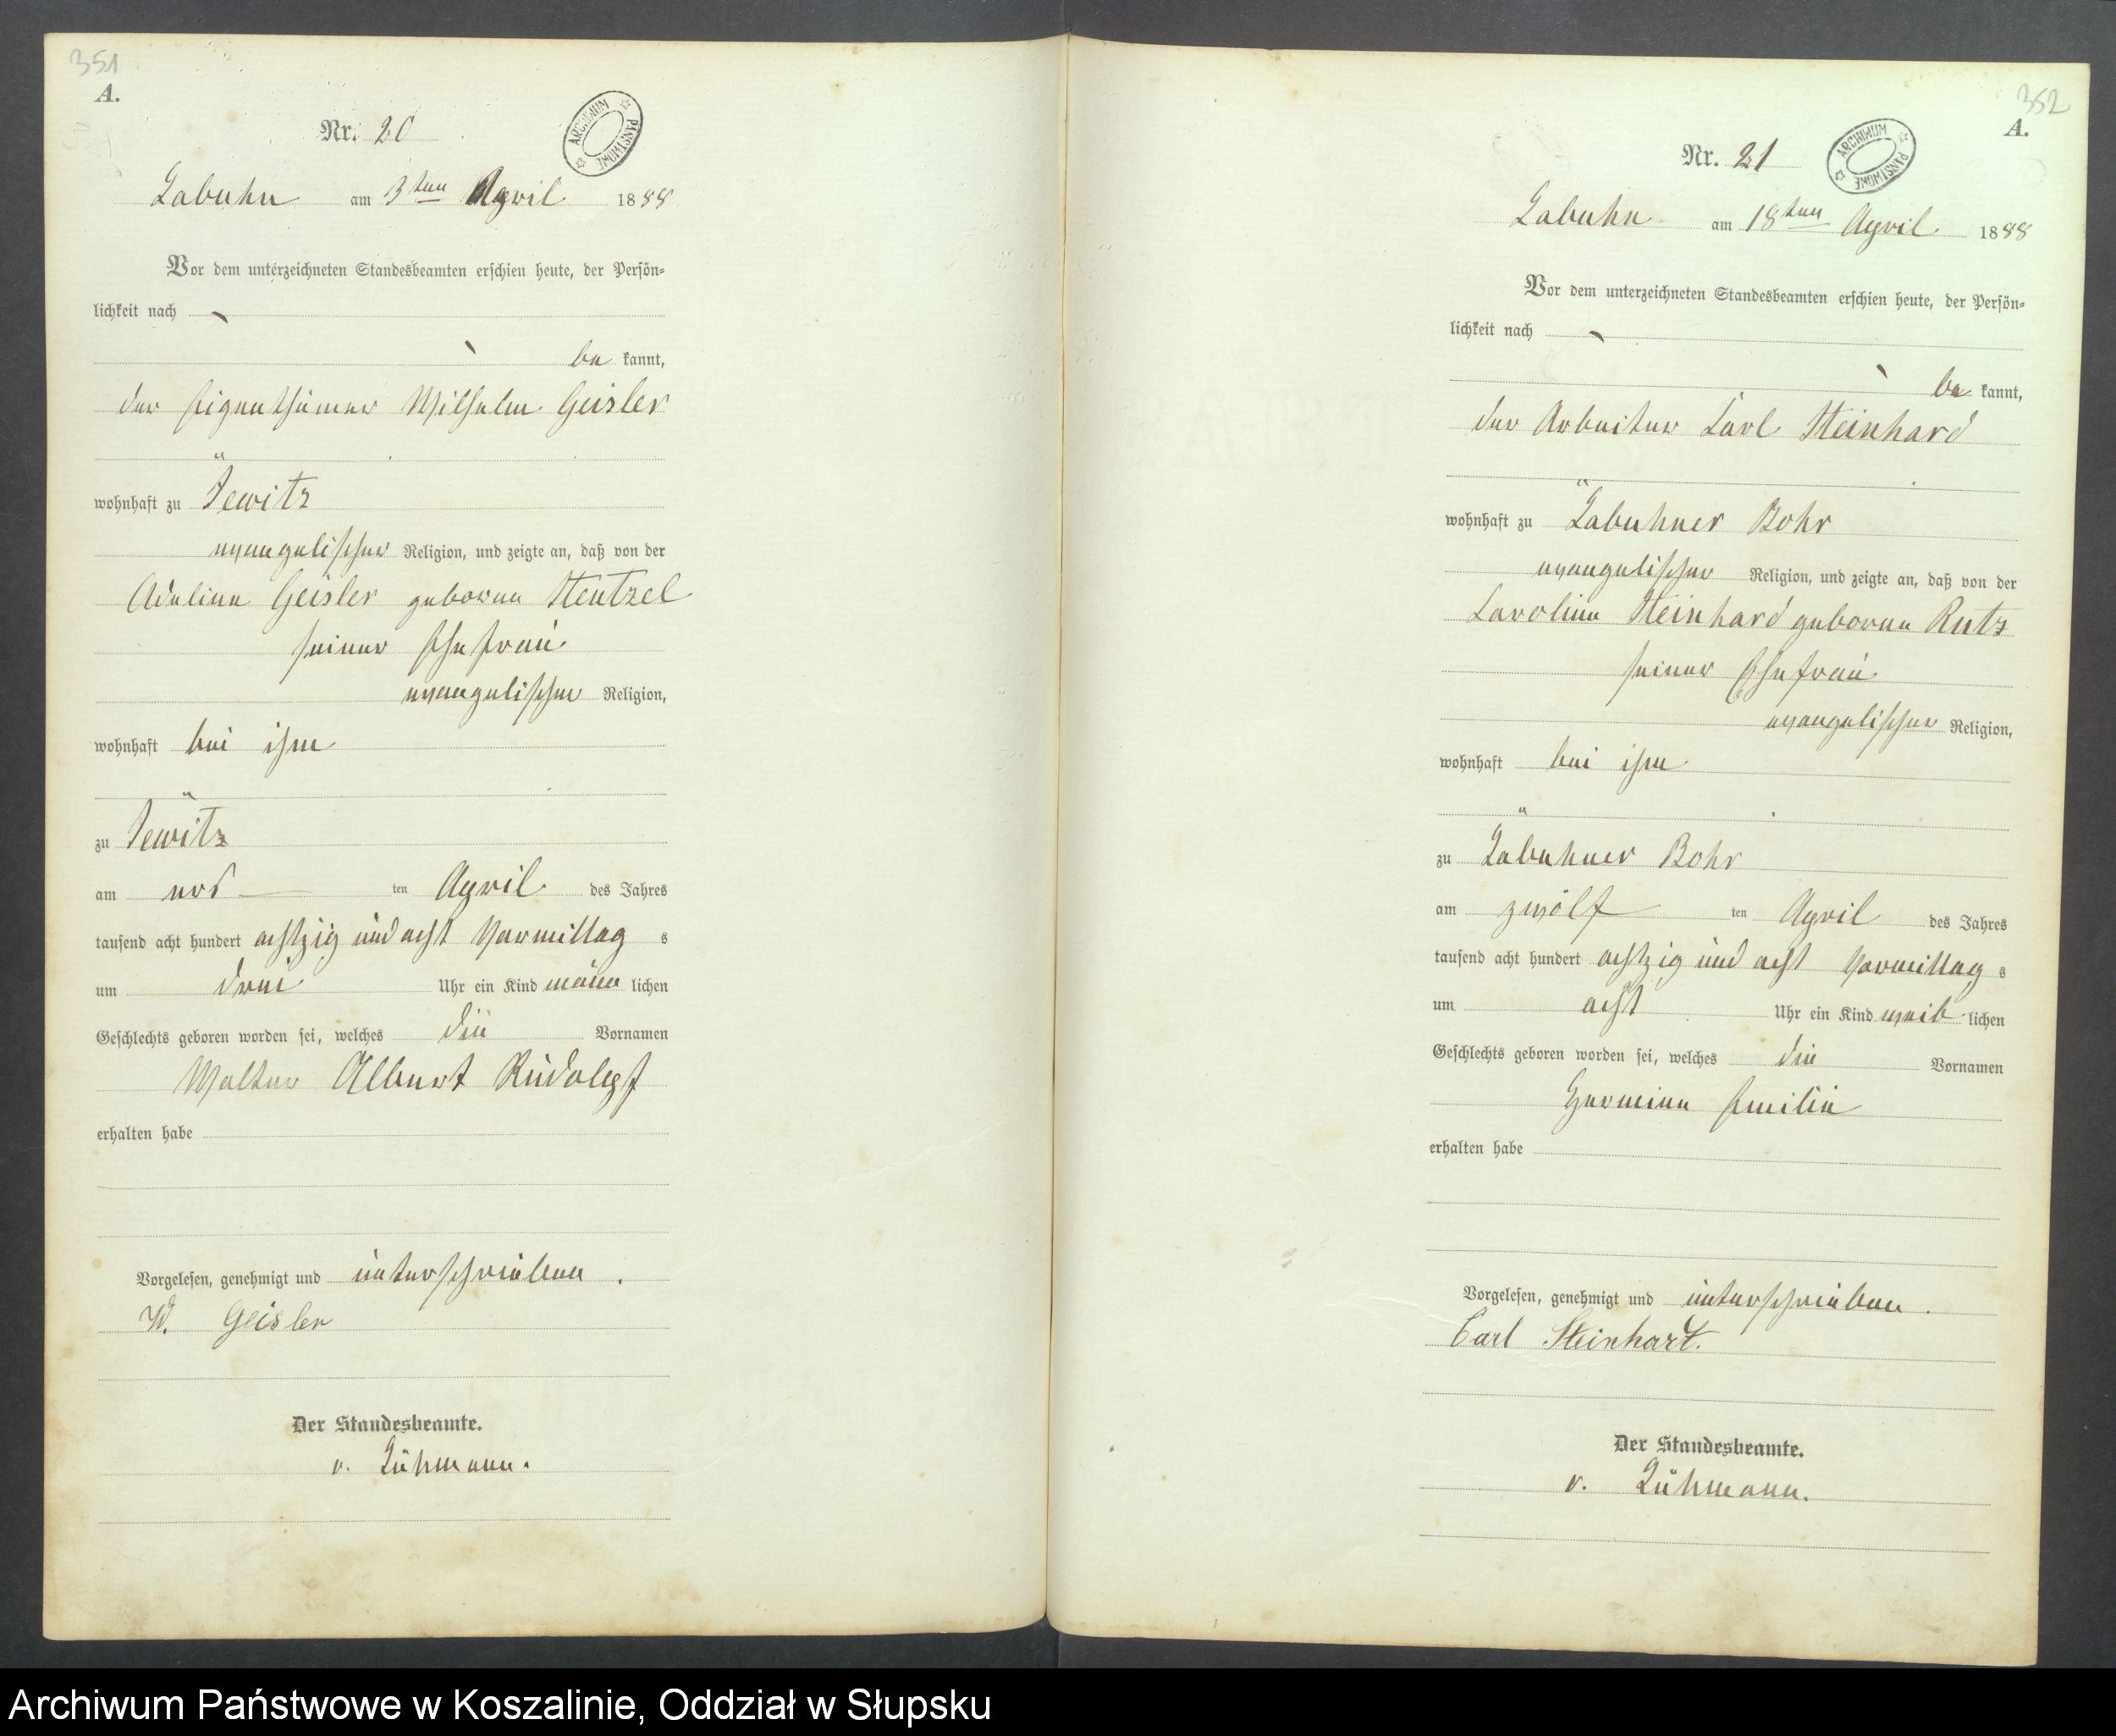 351
A.
Nr. 20
ARCHIWUM PAŃSTWOWE
Labuhn am 3ten April 1888
Vor dem unterzeichneten Standesbeamten erschien heute, der Persön-
lichkeit nach
be kannt,
der Eigenthümer Wilhelm Geisler
wohnhaft zu Jewitz
evangelischer Religion, und zeigte an, daß von der
Adeline Geisler geborene Hentzel
seiner Ehefrau
evangelischer Religion,
wohnhaft bei ihm
zu Jewitz
am ersten April des Jahres
tausend acht hundert achtzig und acht Vormittags
um drei Uhr ein Kind männlichen
Geschlechts geboren worden sei, welches die Vornamen
Walter Albert Rudolf
erhalten habe
Vorgelesen, genehmigt und unterschrieben.
W. Geisler
Der Standesbeamte.
v. Lühmann.
352
A.
Nr. 21
ARCHIWUM PAŃSTWOWE
Labuhn am 18ten April 1888
Vor dem unterzeichneten Standesbeamten erschien heute, der Persön-
lichkeit nach
be kannt,
der Arbeiter Carl Steinhard
wohnhaft zu Labuhner Bohr
evangelischer Religion, und zeigte an, daß von der
Caroline Steinhard geborene Rutz
seiner Ehefrau
evangelischer Religion,
wohnhaft bei ihm
zu Labuhner Bohr
am zwölften April des Jahres
tausend acht hundert achtzig und acht Vormittags
um acht Uhr ein Kind weiblichen
Geschlechts geboren worden sei, welches die Vornamen
Hermine Emilie
erhalten habe
Vorgelesen, genehmigt und unterschrieben.
Carl Steinhart.
Der Standesbeamte.
v. Lühmann.
Archiwum Państwowe w Koszalinie, Oddział w Słupsku